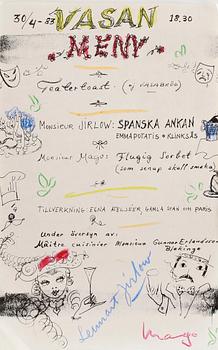 30/4-83 VASAN 18.30
MENY
Teatertoast: (of VASABRÖD)
MONSIEUR JIRLOW: SPANSKA ANKAN
EMMAPOTATIS + KLINKSÅS
Monsieur Mago: Flygig Sorbet
(som senap skall smaka)
TILLVERKNING: EGNA ATELJÉER, GAMLA STAN OCH PARIS
Under översyn av:
Maître cuisinier Monsieur Gunnar Erlandsson
Blekinge
Lennart Jirlow
Mago